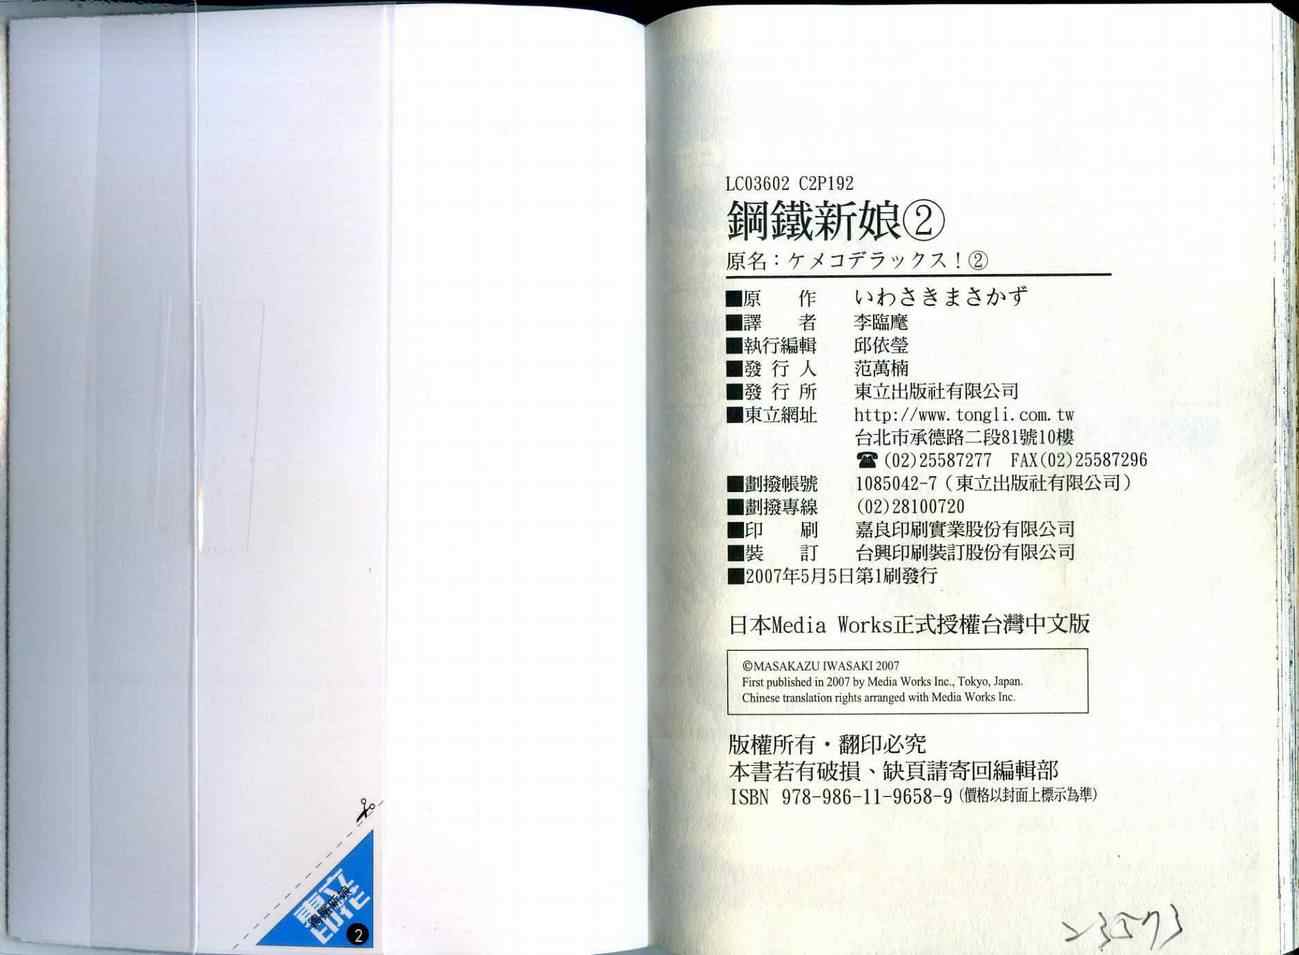 LC03602 C2P192
鋼鐵新娘②
原名：ケメコデラックス！②
■原　作　いわさきまさかず
■譯　者　李臨麾
■執行編輯　邱依瑩
■發行人　范萬楠
■發行所　東立出版社有限公司
■東立網址　http://www.tongli.com.tw
台北市承德路二段81號10樓
☎(02)25587277　FAX(02)25587296
■劃撥帳號　1085042-7（東立出版社有限公司）
■劃撥專線　(02)28100720
■印　刷　嘉良印刷實業股份有限公司
■裝　訂　台興印刷裝訂股份有限公司
■2007年5月5日第1刷發行
日本Media Works正式授權台灣中文版
©MASAKAZU IWASAKI 2007
First published in 2007 by Media Works Inc., Tokyo, Japan.
Chinese translation rights arranged with Media Works Inc.
版權所有・翻印必究
本書若有破損、缺頁請寄回編輯部
ISBN 978-986-11-9658-9（價格以封面上標示為準）
東立
印花
2
23573